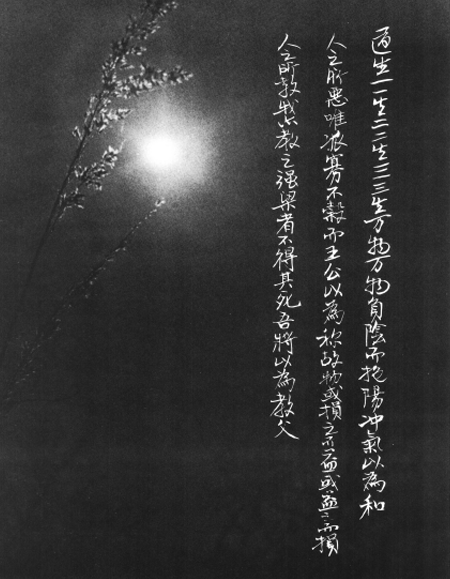 道生一一生二二生三三生万物万物負陰而抱陽冲氣以為和
人之所惡唯孤寡不穀而王公以為称故物或損之而益或益之而損
人之所教我教之强梁者不得其死吾將以為教父